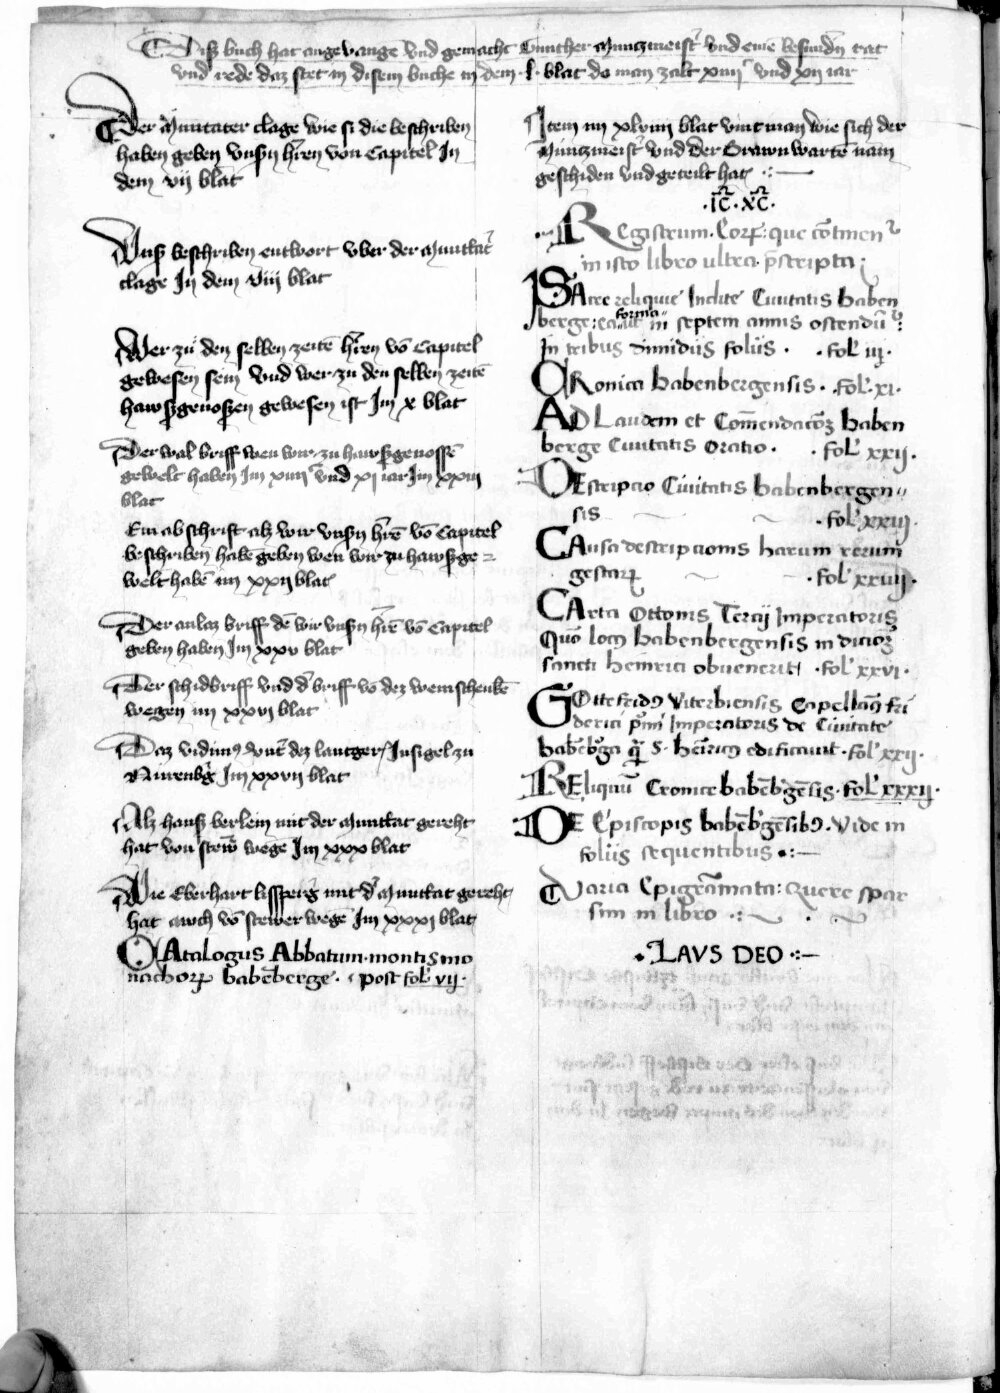 Disz buch hat angevangē vnd gemacht Gunther Muntzmeist' vnd eine besundn rat
vnd rede daz stet in disem buche in dem · l · blat do man zalt xiiii vnd xii iar
Der Muntater clage wie si die beschriben
haben geben vnsn h'ren von Capitel In
dem vij blat
Vnsz beschriben entwort vber der Muntat'
clage In dem viij blat
Wer zu den selben zeitē h'ren vō Capitel
gewesen sein vnd wer zu den selben zeitē
hawszgenoszen gewesen ist Im x blat
Der wal briff wen wir zu hawszgenossē
gewelt haben Im xiiii vnd xi iar Im xxiii
blat
Ein abschrift alz wir vnsn h'rē vō Capitel
beschriben habē geben wen wir zu hawsge=
welt habē im xxii blat
Der anlaz briff dē wir vnsn h'rē vō Capitel
geben haben Im xxv blat
Der schidbriff vnd d' briff vō dez weinschenkē
wegen im xxvj blat
Daz vidimus vnt' dez lantger' Insigel zu
Nurenbg' Im xxvii blat
Alz hansz berlein mit der Muntat gereht
hat von stew' wegē Im xxx blat
Wie Eberhart lissperg' mit d' Muntat gereht
hat awch vō stewer wegē Im xxxi blat
CAtalogus Abbatum montis mo
nachorꝝ babēberge · post fol' vij ·
Item im xlviii blat vint man wie sich der
Müntzmeist' vnd der Brawnwartē nam
geschiden vnd geteilt hat
· IC · XC ·
REgistrum · Corꝝ : que cōtinen'
in isto libro ultra p̄scripta ;
SAcre reliquie Inclite Ciuitatis Haben
berge : ea forma ut in septem annis ostendū' :
In tribus dimidiis foliis · · fol' iij ·
CRonica Habenbergensis · fol' xi ·
AD Laudem et Com̄endacōꝫ Haben
berge Ciuitatis Oratio · · fol' xxij ·
DEscripcio Ciuitatis Habenbergen
sis · fol' xxiij ·
CAusa descripcionis harum rerum
gestarꝝ · fol' xxiiij ·
CArta Ottonis Tercij Imperatoris
Quō locus Habenbergensis in dicioꝫ
sancti Heinrici obuenerit · fol' xxvi ·
GOttefridus Viterbiensis Capellanus fri
derici p'mi Imperatoris de Ciuitate
habēbga q̄ S · henricus edificauit · fol' xxij ·
REliquū Cronice babēbgēsis · fol' xxxij ·
DE Episcopis babēbgēsibus · Vide in
foliis sequentibus
Varia Epigrāmata : Quere spar
sim in libro
· LAVS DEO